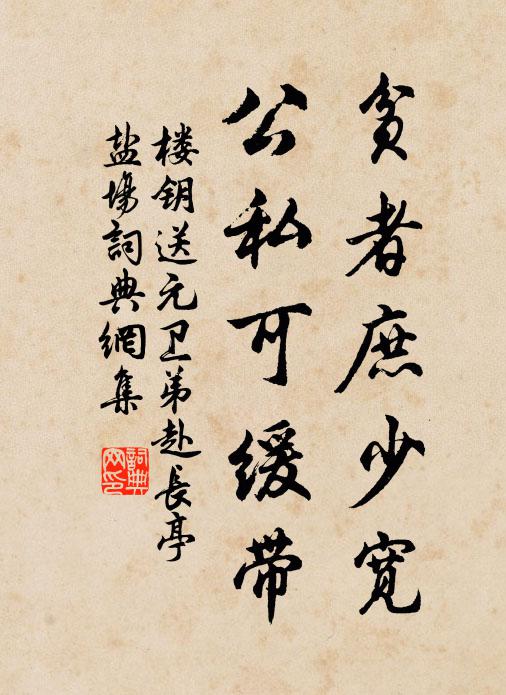 贫者庶少宽
公私可缓带
楼钥送元卫弟赴长亭
盐场詞典網集
詞典网印